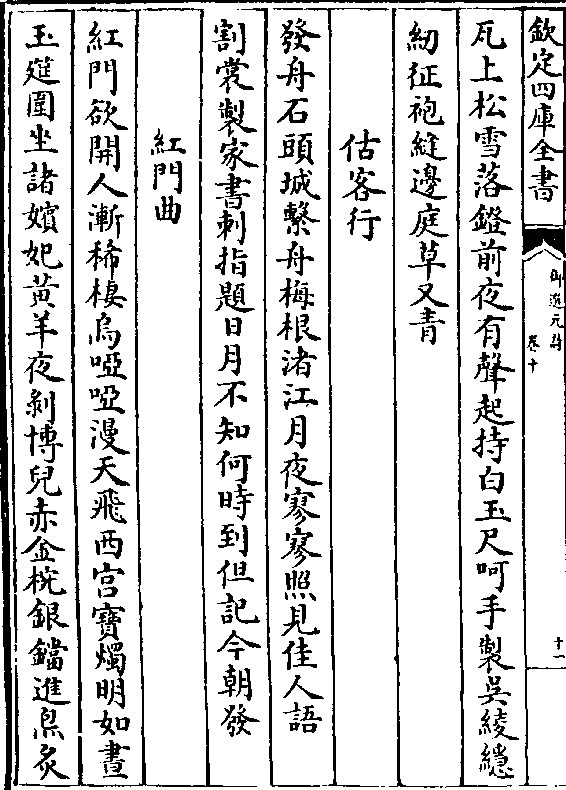 欽定四庫全書
御選元詩
卷十
十一
瓦上松雪落鐙前夜有聲起持白玉尺呵手製吳綾繐
紉征袍縫邊庭草又青
估客行
發舟石頭城繫舟梅根渚江月夜寥寥照見佳人語
割裳製家書刺指題日月不知何時到但記今朝發
紅門曲
紅門欲開人漸稀棲烏啞啞漫天飛西宮寶燭明如晝
玉筵圍坐諸嬪妃黃羊夜剝博兒赤金椀銀鐺進炰炙